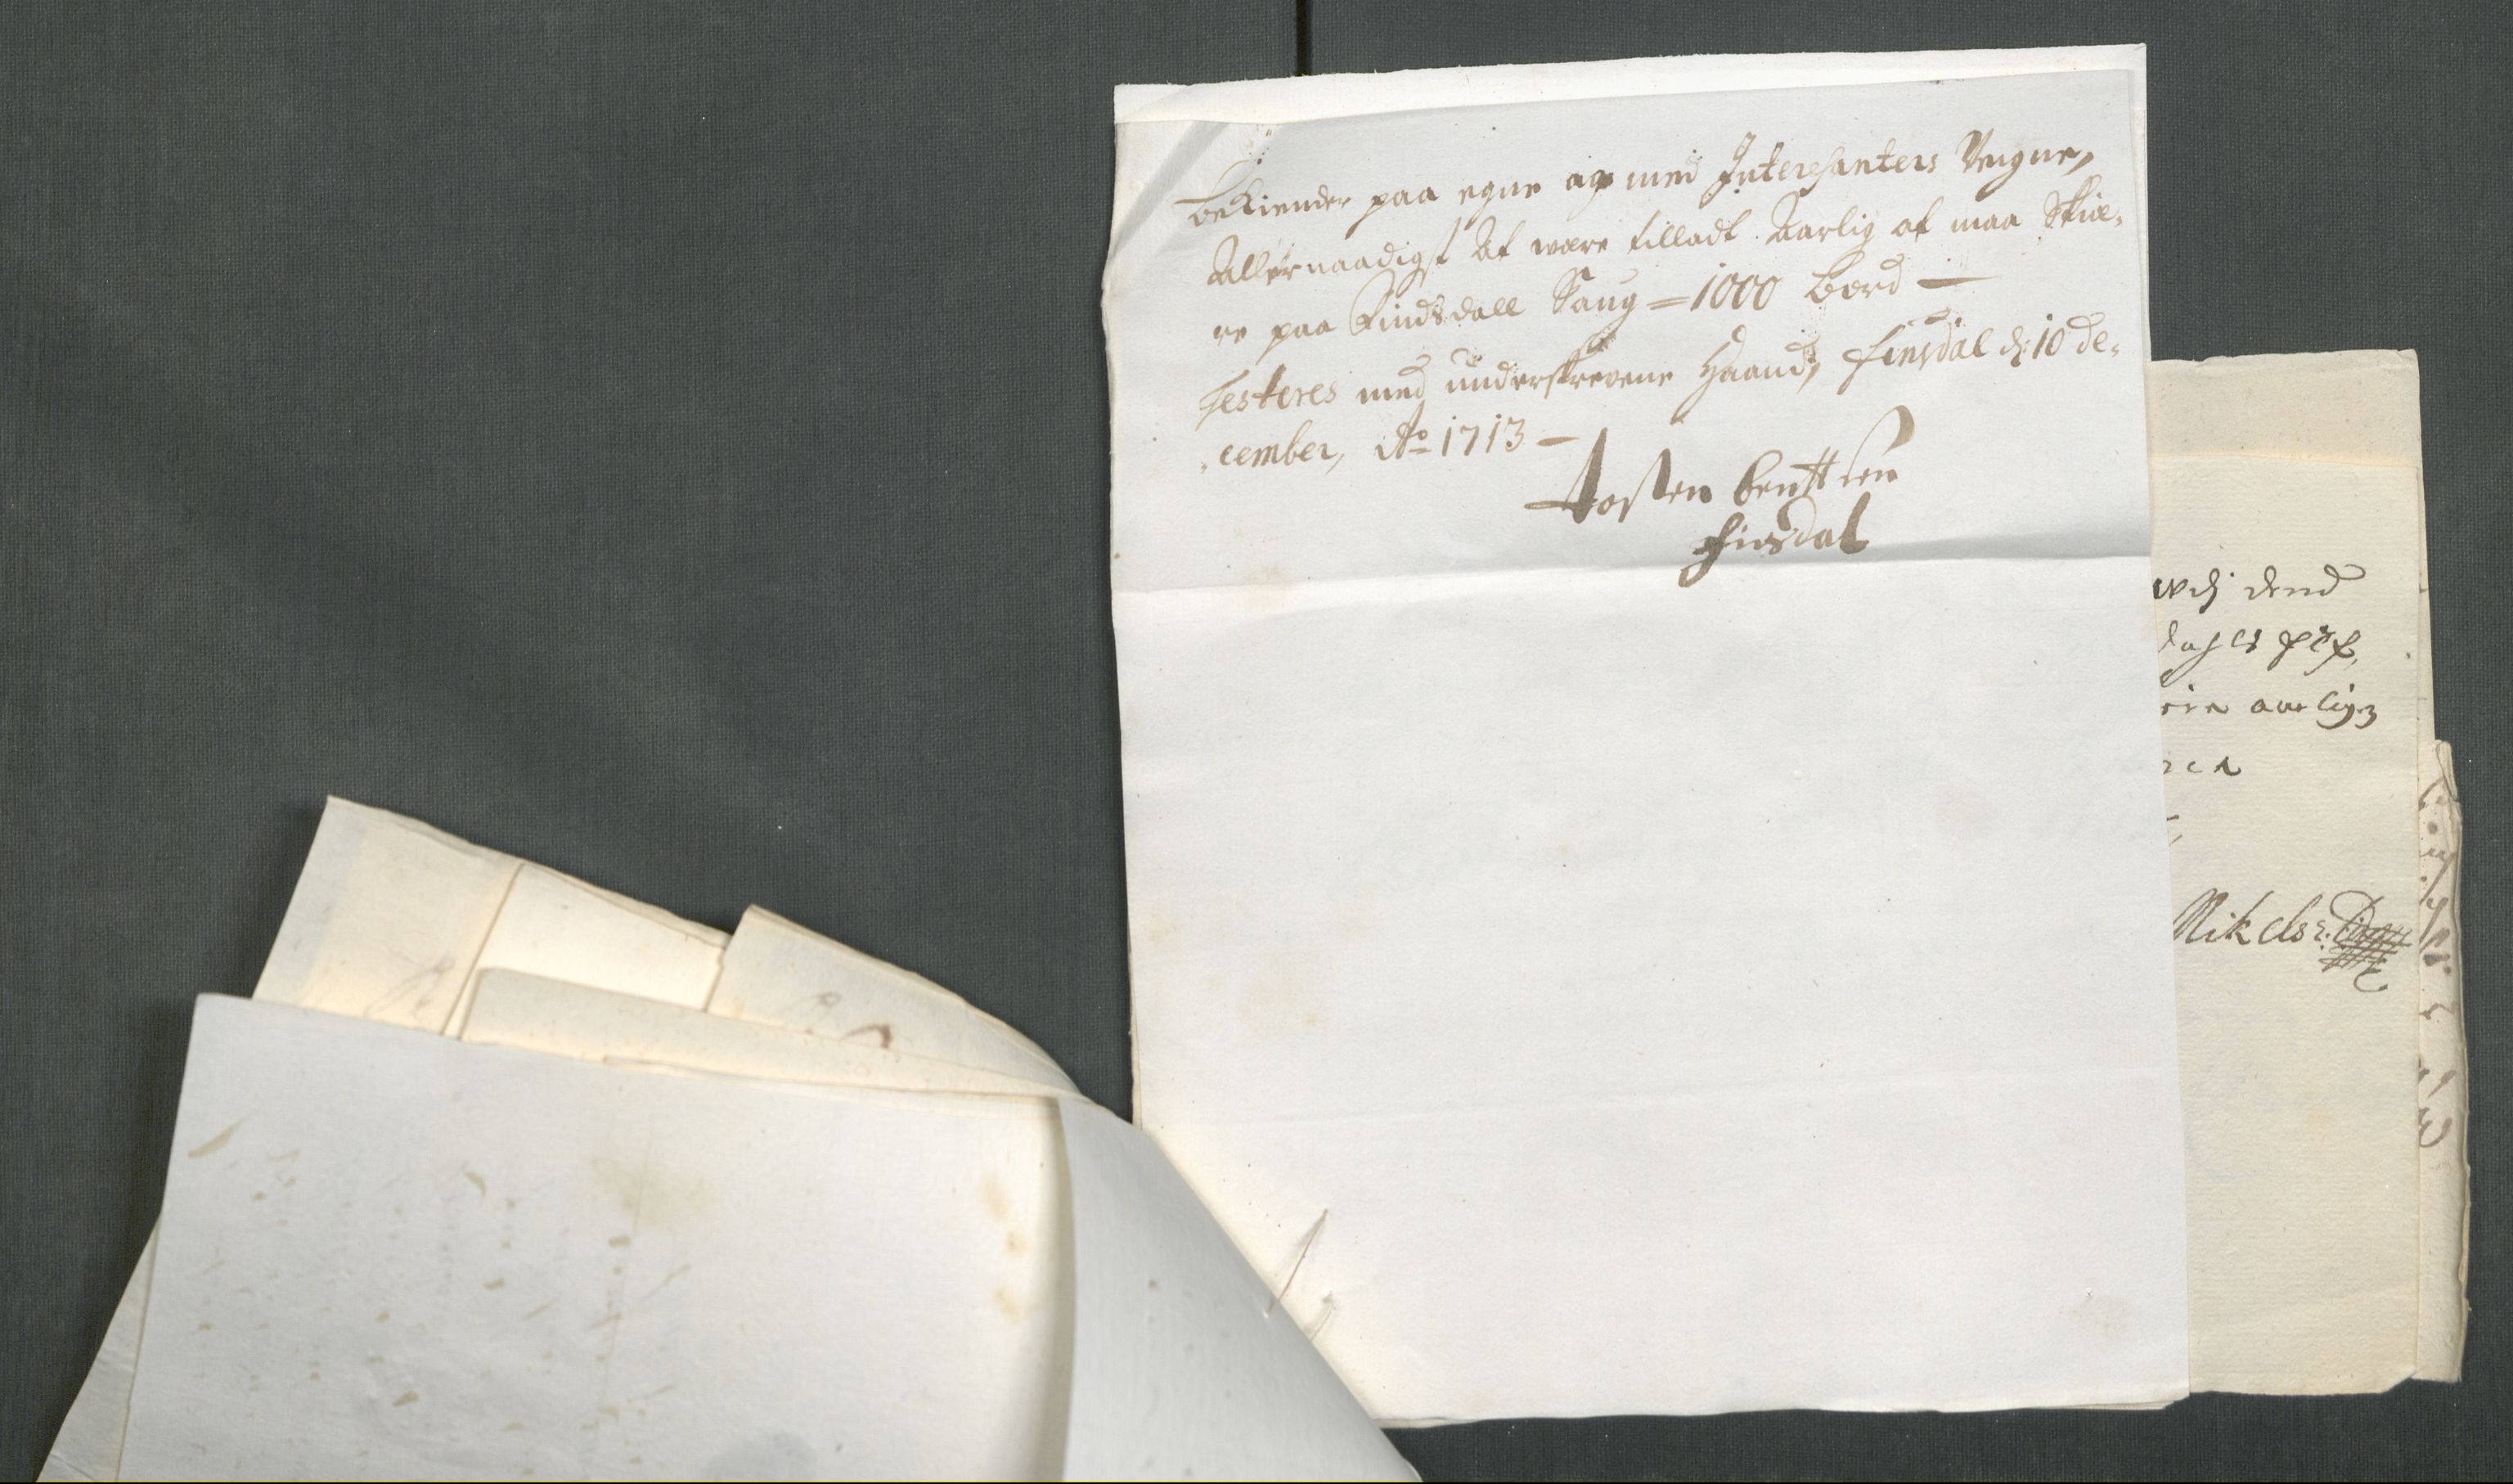 bekiender paa egne og med Interessanters Veigne,
Allernaadigst At være tilladt Aarlig at maa Skiæ-
re paa Findsdall Saug = 1000 bord —
testeres med underskrevene Haand, Finsdal d: 10 de-
cember, Ao 1713 —
tosten bentsen
finsdal
dend
aarligen
Nikels: